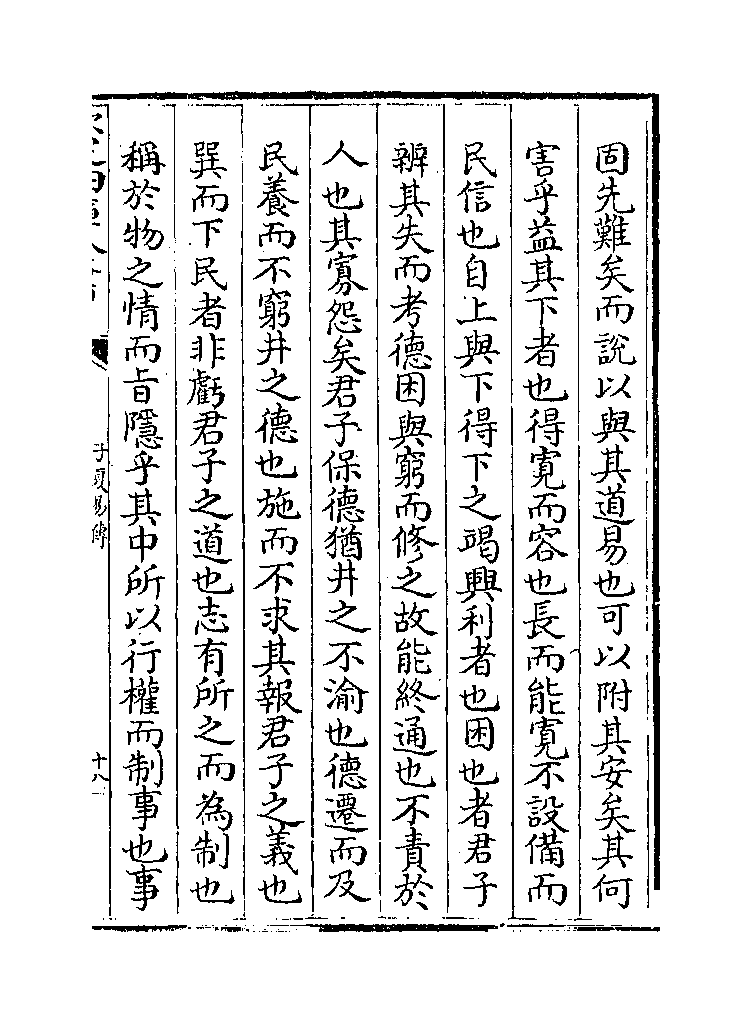 固先難矣而說以與其道易也可以附其安矣其何
害乎益其下者也得寛而容也長而能寛不設備而
民信也自上與下得下之竭興利者也困也者君子
辨其失而考德困與窮而修之故能終通也不責於
人也其寡怨矣君子保德猶井之不渝也德遷而及
民養而不窮井之德也施而不求其報君子之義也
巽而下民者非虧君子之道也志有所之而為制也
稱於物之情而旨隱乎其中所以行權而制事也事
子夏易傳
十八